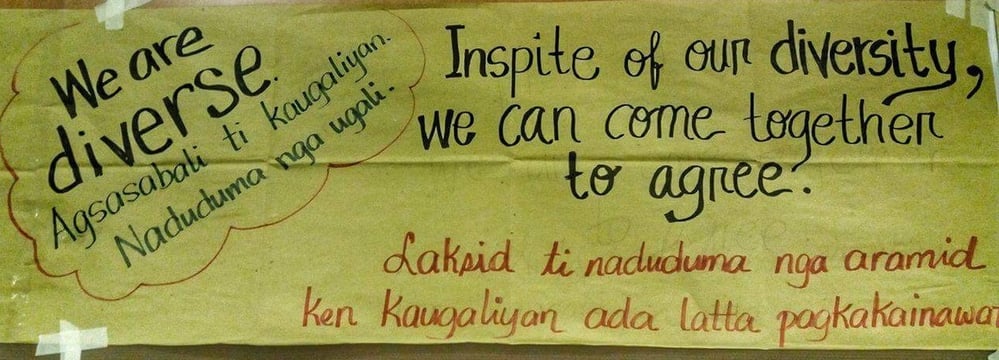 We are
diverse.
Agsasabali ti kaugaliyan.
Naduduma nga ugali.
Inspite of our diversity,
we can come together
to agree.
Laksid ti naduduma nga aramid
ken kaugaliyan ada latta pagkakainawa